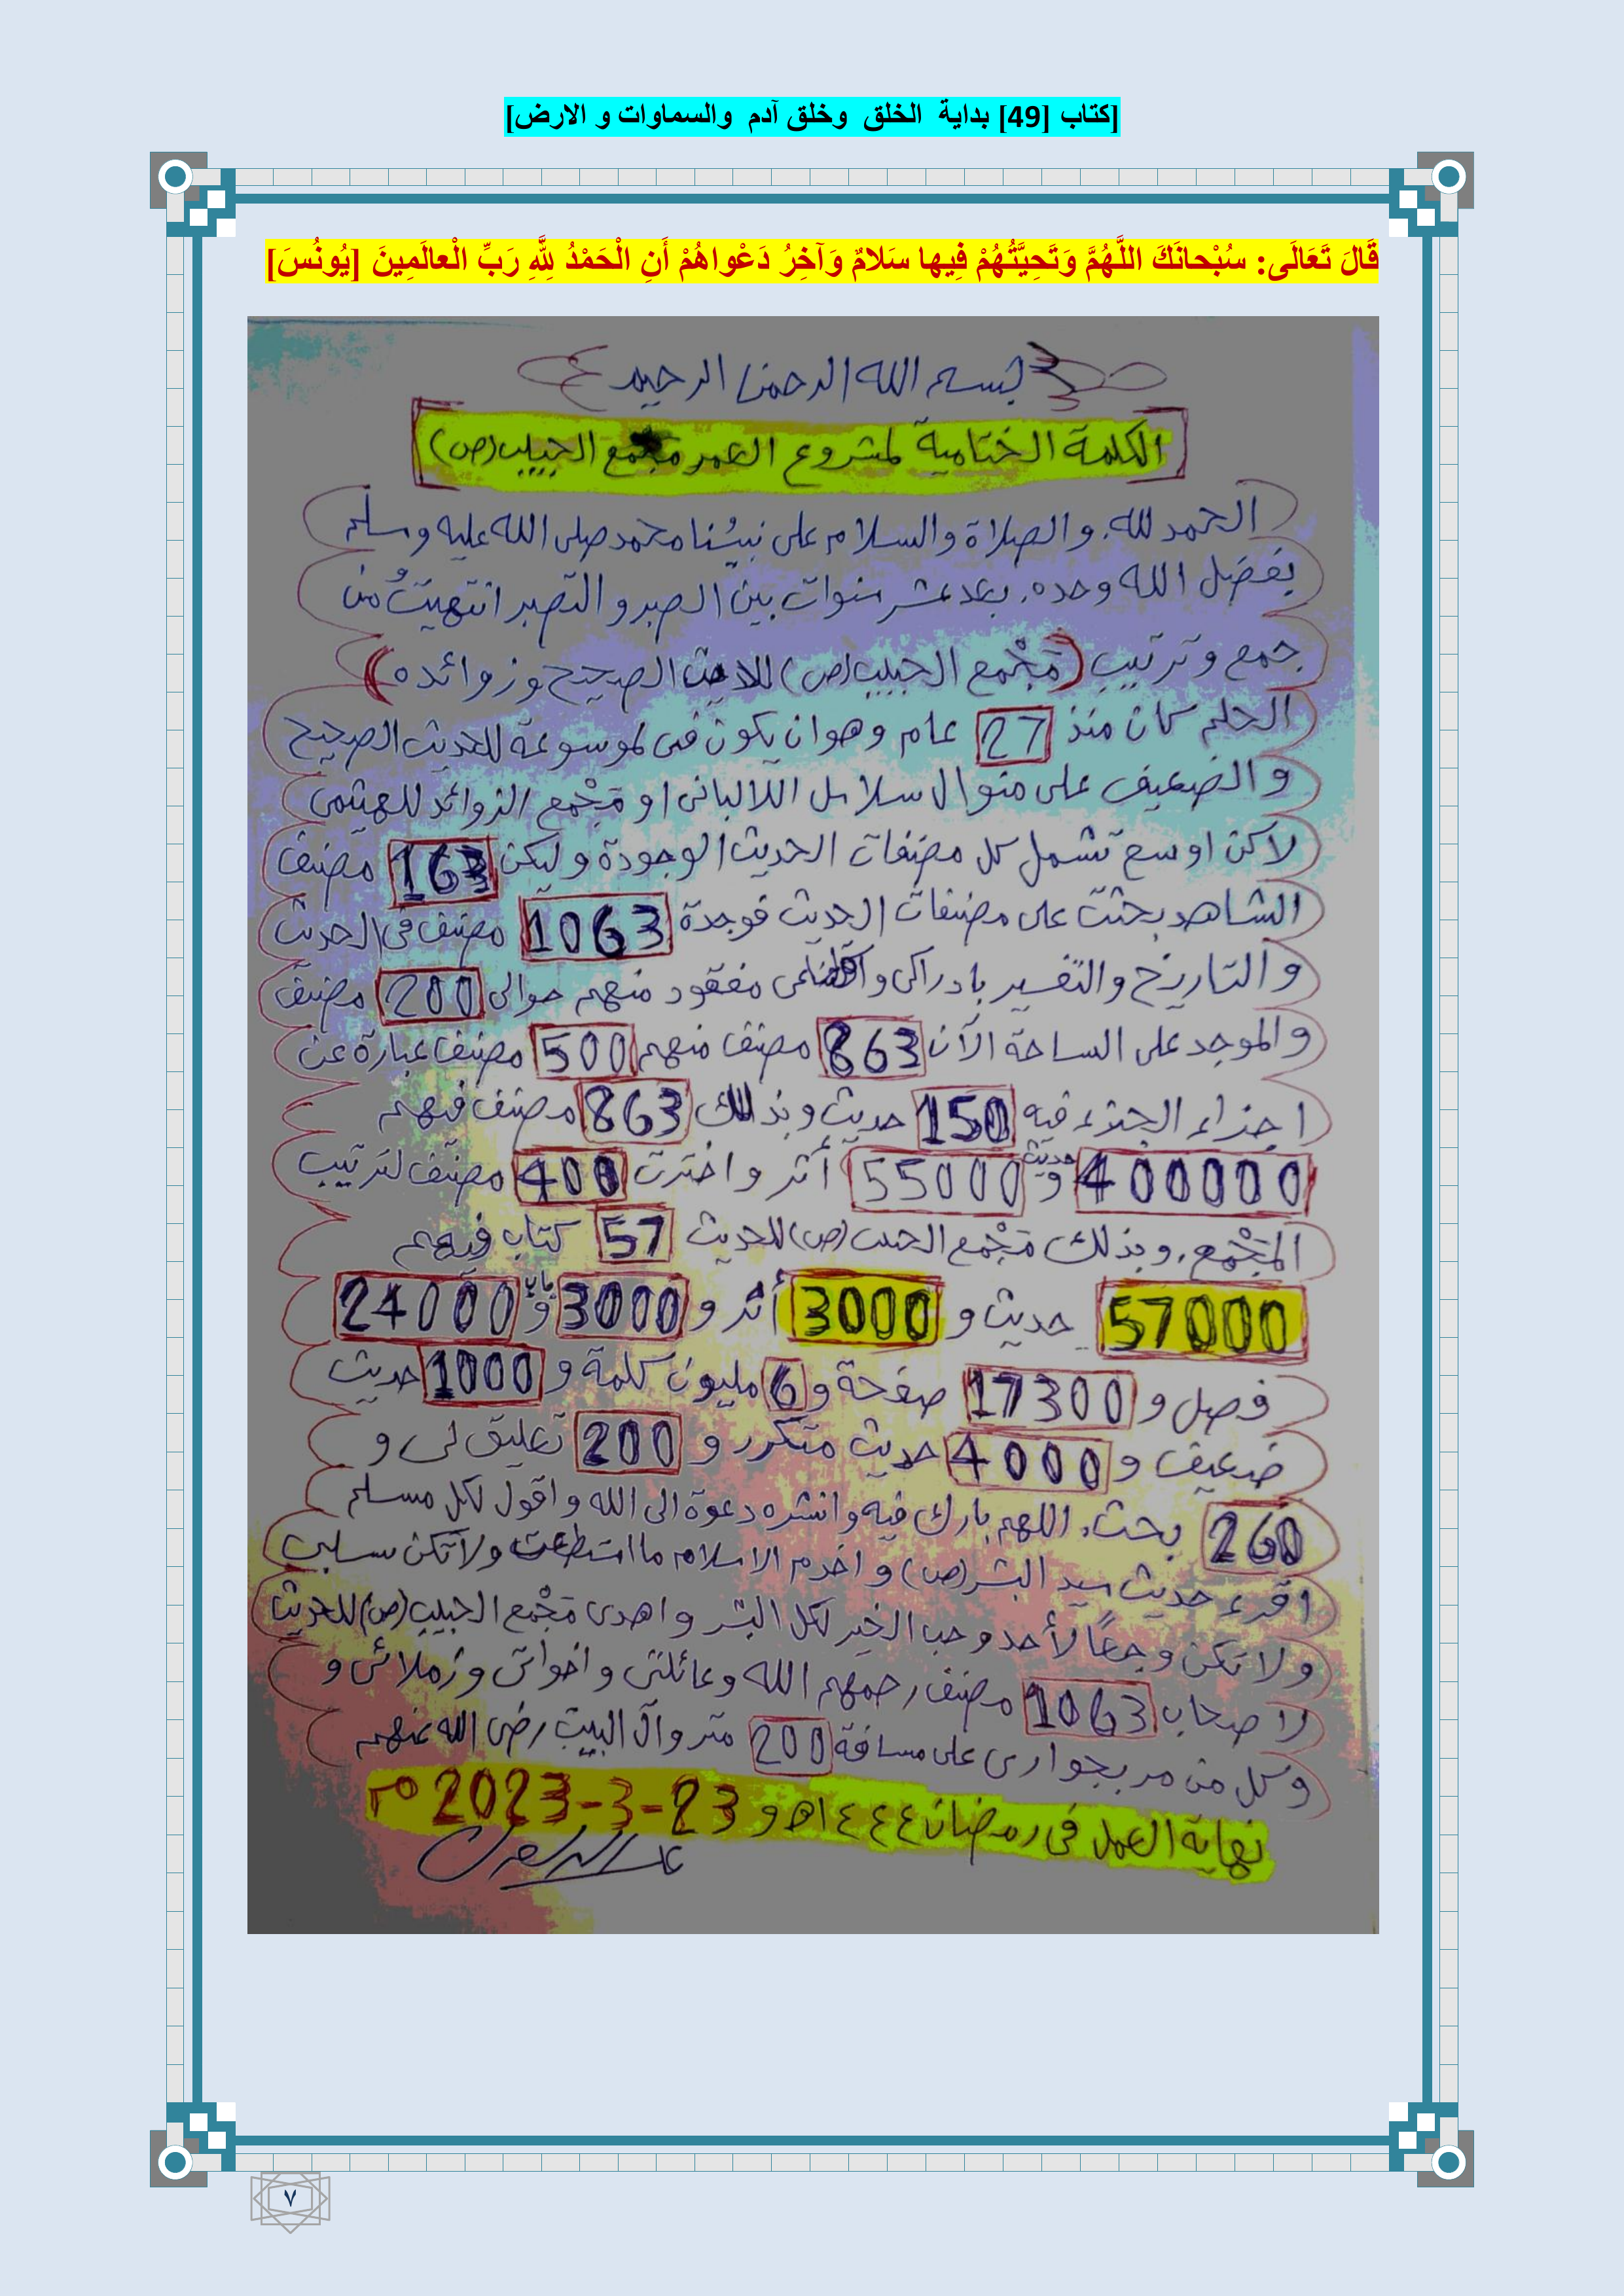 [كتاب [49] بداية الخلق وخلق آدم والسماوات و الارض]
قَالَ تَعَالَى: سُبْحانَكَ اللَّهُمَّ وَتَحِيَّتُهُمْ فِيها سَلامٌ وَآخِرُ دَعْواهُمْ أَنِ الْحَمْدُ لِلَّهِ رَبِّ الْعالَمِينَ [يُونُسَ]
بسم الله الرحمن الرحيم
الكلمة الختامية لمشروع العمر مجمع الحبيب (ص)
الحمد لله. والصلاة والسلام على نبينا محمد صلى الله عليه وسلم
بفضل الله وحده. بعد عشر سنوات بين الصبر والتصبر انتهيتُ من
جمع وترتيب (مَجْمع الحبيب (ص) الصحيح وزوائده)
الحلم كان منذ 27 عام وهو ان يكون فى موسوعة للحديث الصحيح
والضعيف على منوال سلاسل الالبانى او مَجْمع الزوائد للهيثمى
لاكن اوسع تشمل كل مصنفات الحديث الوجودة وليكن 163 مصنف
الشاهد بحثت على مصنفات الحديث فوجدة 1063 مصنف فى الحديث
والتاريخ والتفسير بادراكى مفقود منهم حوالى 200 مصنف
والموجد على الساحة الآن 863 مصنف منهم 500 مصنف عبارة عن
اجزاء الجزء فيه 150 حديث وبذلك 863 مصنف فيهم
400000 حديث و 55000 أثر واخترت 400 مصنف لترتيب
المَجْمع. وبذلك مَجْمع الحبيب (ص) للحديث 57 كتاب فيهم
57000 حديث و 3000 أثر و 3000 باب و 24000
فصل و 17300 صفحة و 6 مليون كلمة و 1000 حديث
ضعيف و 4000 حديث متكرر و 200 تعليق لى و
260 بحث. اللهم بارك فيه وانشره دعوة الى الله واقول لكل مسلم
اقرء حديث سيد البشر (ص) واخدم الاسلام ما استطعت ولا تكن سلبى
ولا تكن وجعًا لأحد وحب الخير لكل البشر واهدى مَجْمع الحبيب (ص) للحديث
لاصحاب 1063 مصنف رحمهم الله وعائلتى واخواتى وزملائى و
وكل من مر بجوارى على مسافة 200 متر وآل البيت رضى الله عنهم
نهاية العمل فى رمضان ١٤٤٤هـ و 23-3-2023م
٧